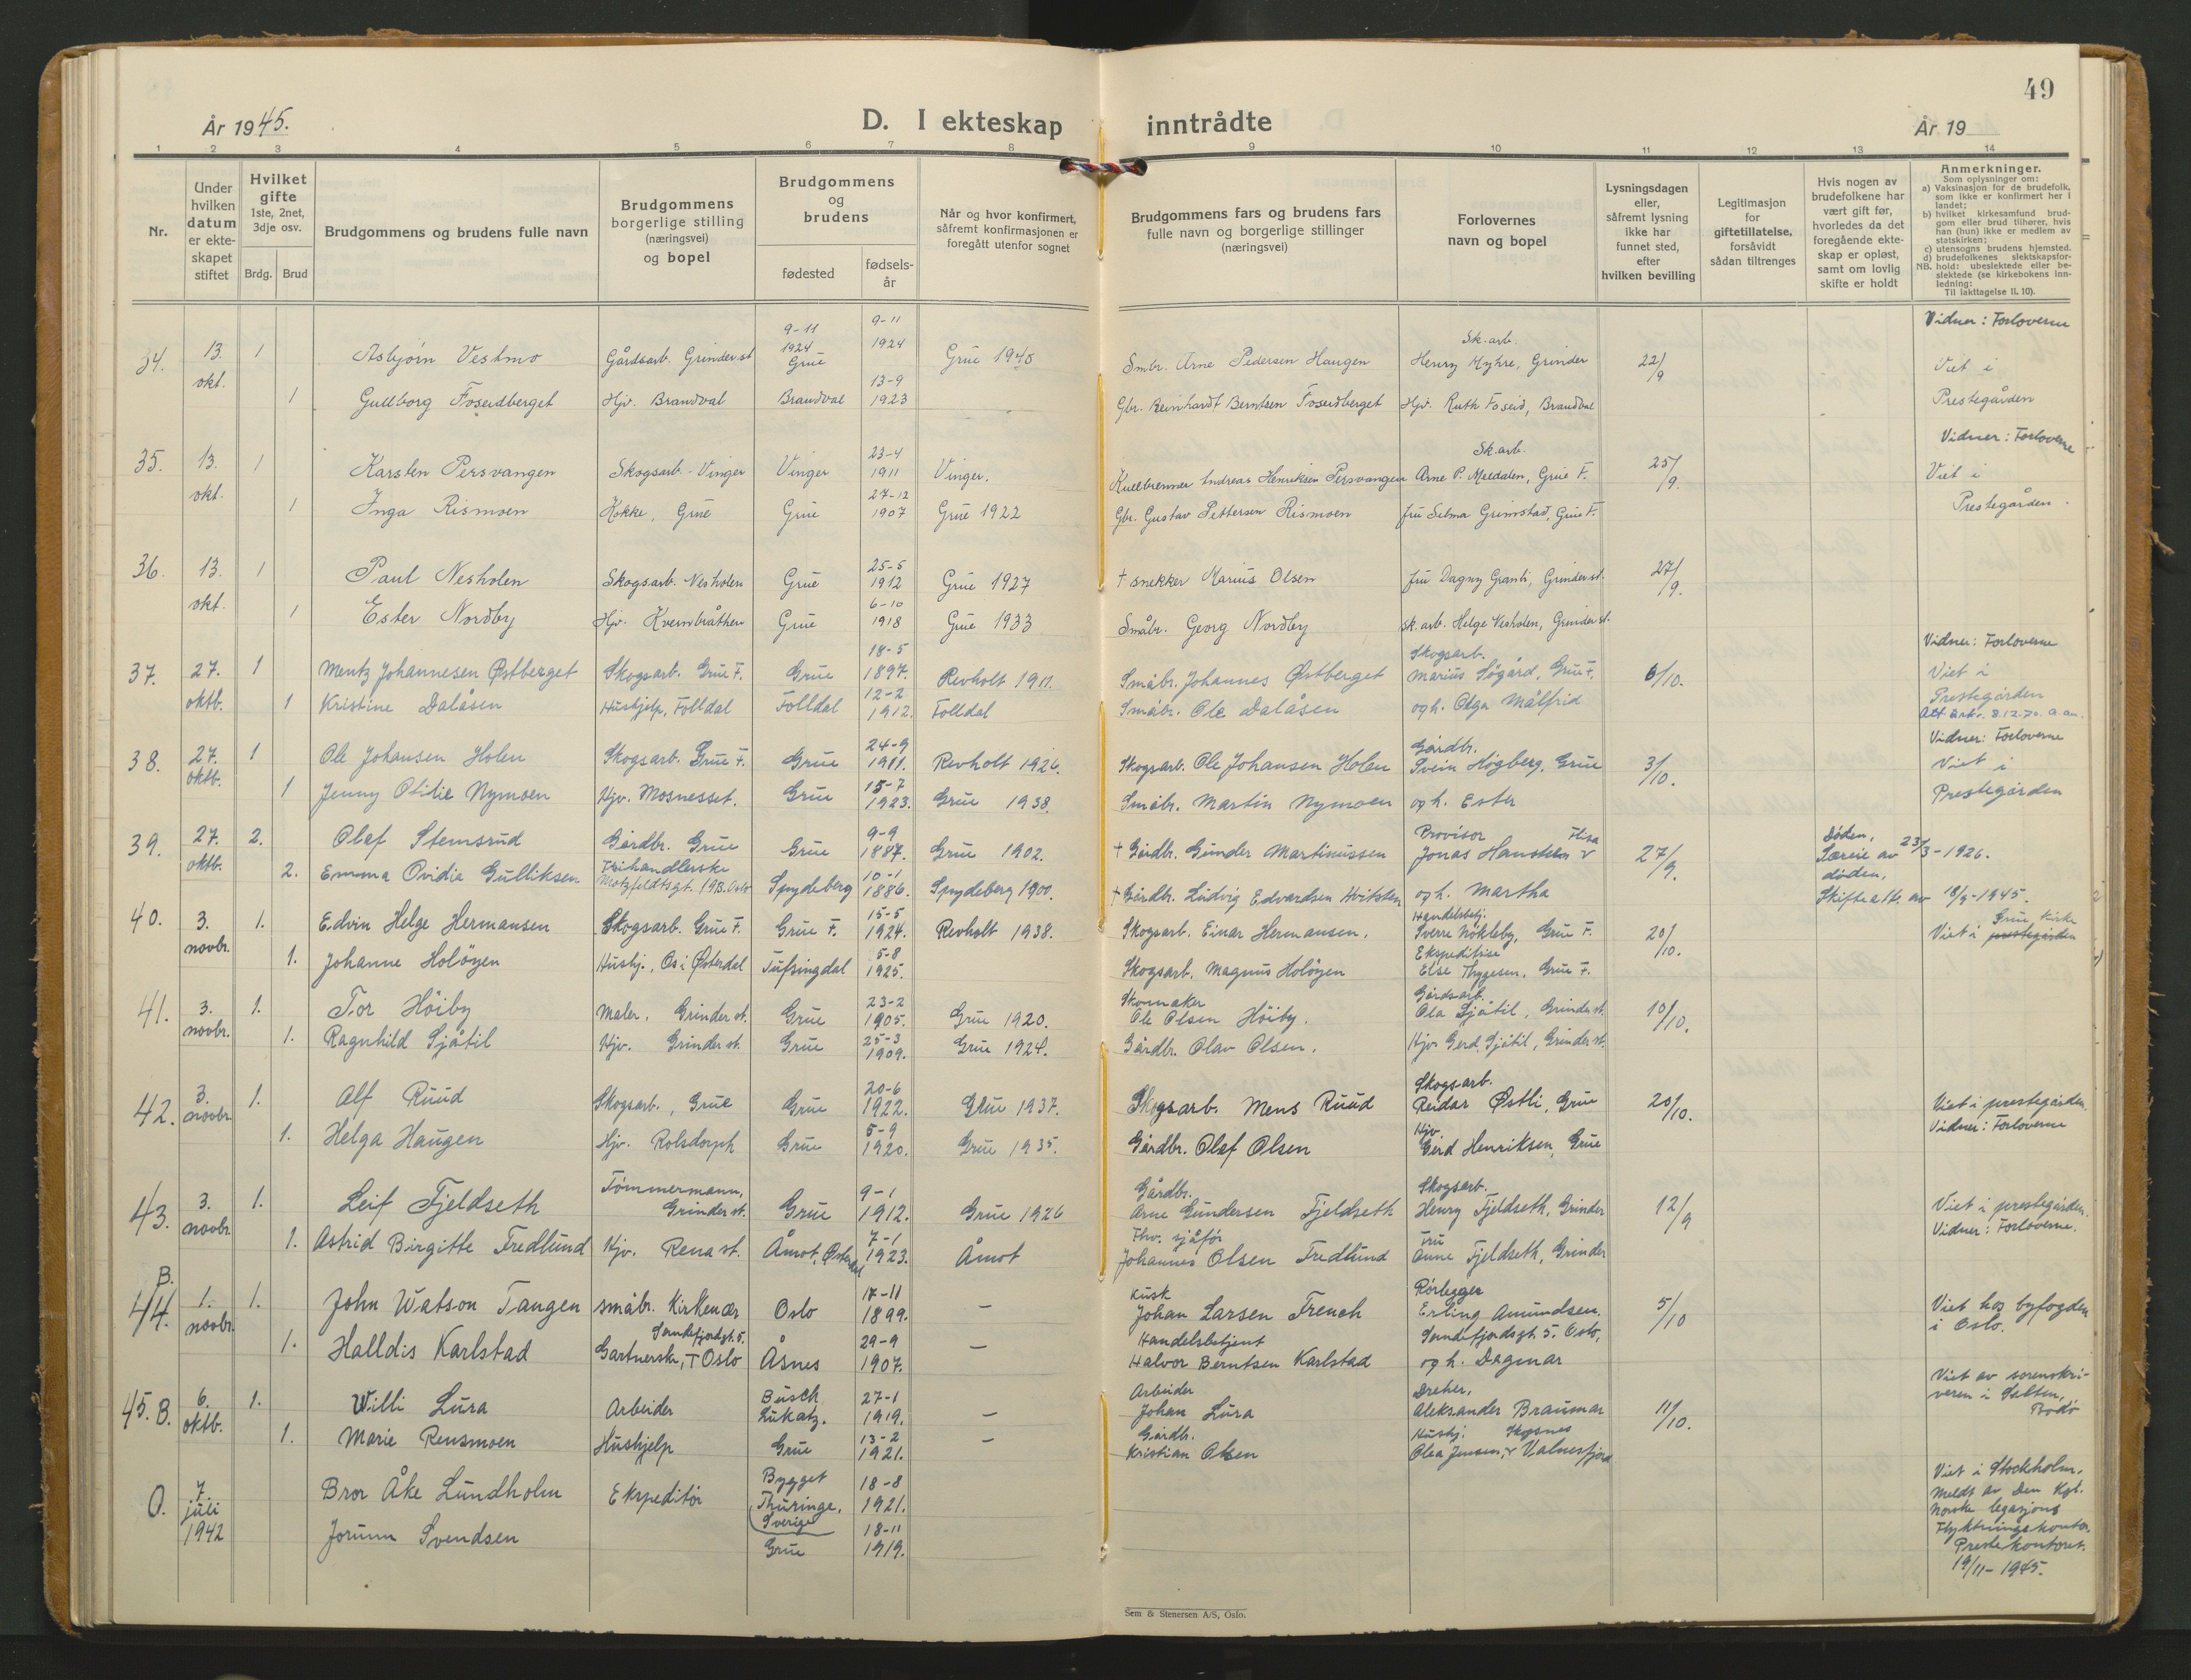 49
År 1945.
D. I ekteskap inntrådte
År 19
1 2 3 4 5 6 7 8 9 10 11 12 13 14
Nr.
Under hvilken datum er ekteskapet stiftet
Hvilket gifte 1ste, 2net, 3dje osv.
Brdg. Brud
Brudgommens og brudens fulle navn
Brudgommens borgerlige stilling (næringsvei) og bopel
Brudgommens og brudens
fødested
fødselsår
Når og hvor konfirmert, såfremt konfirmasjonen er foregått utenfor sognet
Brudgommens fars og brudens fars fulle navn og borgerlige stillinger (næringsvei)
Forlovernes navn og bopel
Lysningsdagen eller, såfremt lysning ikke har funnet sted, efter hvilken bevilling
Legitimasjon for giftetillatelse, forsåvidt sådan tiltrenges
Hvis nogen av brudefolkene har vært gift før, hvorledes da det foregående ekteskap er opløst, samt om lovlig skifte er holdt
Anmerkninger.
Som oplysninger om:
a) Vaksinasjon for de brudefolk, som ikke er konfirmert her i landet;
b) hvilket kirkesamfund brudgom eller brud tilhører, hvis han (hun) ikke er medlem av statskirken;
c) utensogns brudens hjemsted.
d) brudefolkenes slektskapsforhold: ubeslektede eller beslektede (se kirkebokens innledning:
NB.
Til iakttagelse II. 10).
34. 13. okt. 1 Asbjørn Vestmo Gårdsarb. Grinder st 9-11 1924 Grue 9-11 1924 Grue 1940 Smbr. Arne Pedersen Haugen Sk.arb. Henry Myhre, Grinder 22/9 Vidner: Forloverne
1 Gullborg Foseidberget Hjv. Brandval Brandval 13-9 1923 Gbr. Reinhardt Berntsen Foseidberget Hjv. Ruth Foseid, Brandval Viet i Prestegården
35. 13. okt. 1 Karsten Persvangen Skogsarb. Vinger Vinger 23-4 1911 Vinger. Kullbrenner Andreas Henriksen Persvangen Sk.arb. Arne P. Meldalen, Grue F. 25/9. Vidner: Forloverne
1 Inga Rismoen Kokke, Grue Grue 27-12 1907 Grue 1922 Gbr. Gustav Pettersen Rismoen fru Selma Grimstad, Grue F. Viet i Prestegården.
36. 13. okt. 1 Paul Nesholen Skogsarb. Nesholen Grue 25-5 1912 Grue 1927 † snekker Marius Olsen fru Dagny Granli, Grinder st. 27/9.
1 Ester Nordby Hjv. Kvernbråthen Grue 6-10 1918 Grue 1933 Småbr. Georg Nordby sk.arb. Helge Nesholen, Grinder st.
37. 27. oktb. 1 Mentz Johannesen Østberget Skogsarb. Grue F. Grue 18-5 1897. Revholt 1911. Småbr. Johannes Østberget Skogsarb. Marius Søgård, Grue F. 6/10. Vidner: Forloverne
1 Kristine Dalåsen Hushjelp, Folldal Folldal 12-2 1912. Folldal Småbr. Ole Dalåsen og h. Olga Målfrid Viet i Prestegården
Att. 8.12.70.
38. 27. oktb. 1 Ole Johansen Holen Skogsarb. Grue F. Grue 24-9 1911. Revholt 1926. Skogsarb. Ole Johansen Holen Gårdbr. Svein Høgberg, Grue 3/10. Vidner: Forloverne
1 Jenny Otilie Nymoen Hjv. Mosnesset. Grue 15-7 1923. Grue 1938. Småbr. Martin Nymoen og h. Ester Viet i Prestegården
39. 27. oktb. 2. Olaf Stemsrud Gårdbr. Grue Grue 9-9 1887. Grue 1902. † Gårdbr. Gunder Martinussen Provisor Jonas Hansteen Flisa 27/9. Døden,
2. Emma Ovidia Gulliksen Frihandlerske Motzfeldtsgt. 19B. Oslo Spydeberg 10-1 1886. Spydeberg 1900. † Gårdbr. Ludvig Edvardsen Hvitsten og h. Martha døden, Skifteatt. av 18/9-1945.
40. 3. novbr. 1. Edvin Helge Hermansen Skogsarb. Grue F. Grue F. 15-5 1924. Revholt 1938. Skogsarb. Einar Hermansen. Handelsbetj. Sverre Nökleby, Grue F. 20/10. Viet i Grue kirke prestegården
1. Johanne Holöyen Hushj., Os i Østerdal Tufsingdal 5-8 1925. Skogsarb. Magnus Holöyen Ekspeditrise Else Thygesen, Grue F.
41. 3. novbr. 1. Tor Höiby Maler, Grinder st. Grue 23-2 1905. Grue 1920. Skomaker Ole Olsen Höiby. Gårdsarb. Ola Sjåtil, Grinder st. 10/10.
1. Ragnhild Sjåtil Hjv. Grinder st. Grue 25-3 1909. Grue 1924. Gårdbr. Olav Olsen. Hjv. Gerd Sjåtil, Grinder st.
42. 3. novbr. 1. Alf Ruud Skogsarb., Grue Grue 20-6 1922. Grue 1937. Skogsarb. Mens Ruud Skogsarb. Reidar Østli, Grue 20/10. Viet i prestegården.
1. Helga Haugen Hjv. Rolsdorph Grue 5-9 1920. Grue 1935. Gårdbr. Olaf Olsen Hjv. Gerd Henriksen, Grue Vidner: Forloverne
43. 3. novbr. 1. Leif Fjeldseth Tömmermann, Grinder st. Grue 9-1 1912. Grue 1926 Gårdbr. Arne Gundersen Fjeldseth Skogsarb. Henry Fjeldseth, Grinder 12/9 Viet i prestegården.
1. Astrid Birgitte Fredlund Hjv. Rena st. Åmot, Østerdal 7-1 1923. Åmot Fhv. sjåför Johannes Olsen Fredlund Fru Anne Fjeldseth, Grinder Vidner: Forloverne.
B. 44. 1. novbr. 1. John Watson Tangen småbr. Kirkenær Oslo 17-11 1899. — Kusk Johan Larsen French Rörlegger Erling Amundsen. 5/10 Viet hos byfogden i Oslo.
1. Halldis Karlstad Gartnerske, Sandefjordgt. 5. Oslo Åsnes 29-9 1907. — Handelsbetjent Halvor Berntsen Karlstad Sandefjordsgt. 5. Oslo, og h. Dagmar
45. B. 6. oktb. 1. Willi Lura Arbeider Busch Lukatz. 27-1 1919. — Arbeider Johan Lura Dreher, Aleksander Braumar 11/10. Viet av sorenskriveren i Salten, Bodö
1. Marie Rensmoen Hushjelp Grue 13-2 1921. — Gårdbr. Kristian Olsen Hushj. Olea Jensen, Valnesfjord
O. 7. juli 1942 Bror Åke Lundholm Ekspeditör Bygget Thuringe, Sverige 18-8 1921. Viet i Stockholm.
Jorunn Svendsen Grue 18-11 1919. Meldt av Den Kgl. Norske legasjons Flyktningskontor. Prestekontoret. 19/11-1945.
Sem & Stenersen A/S, Oslo.